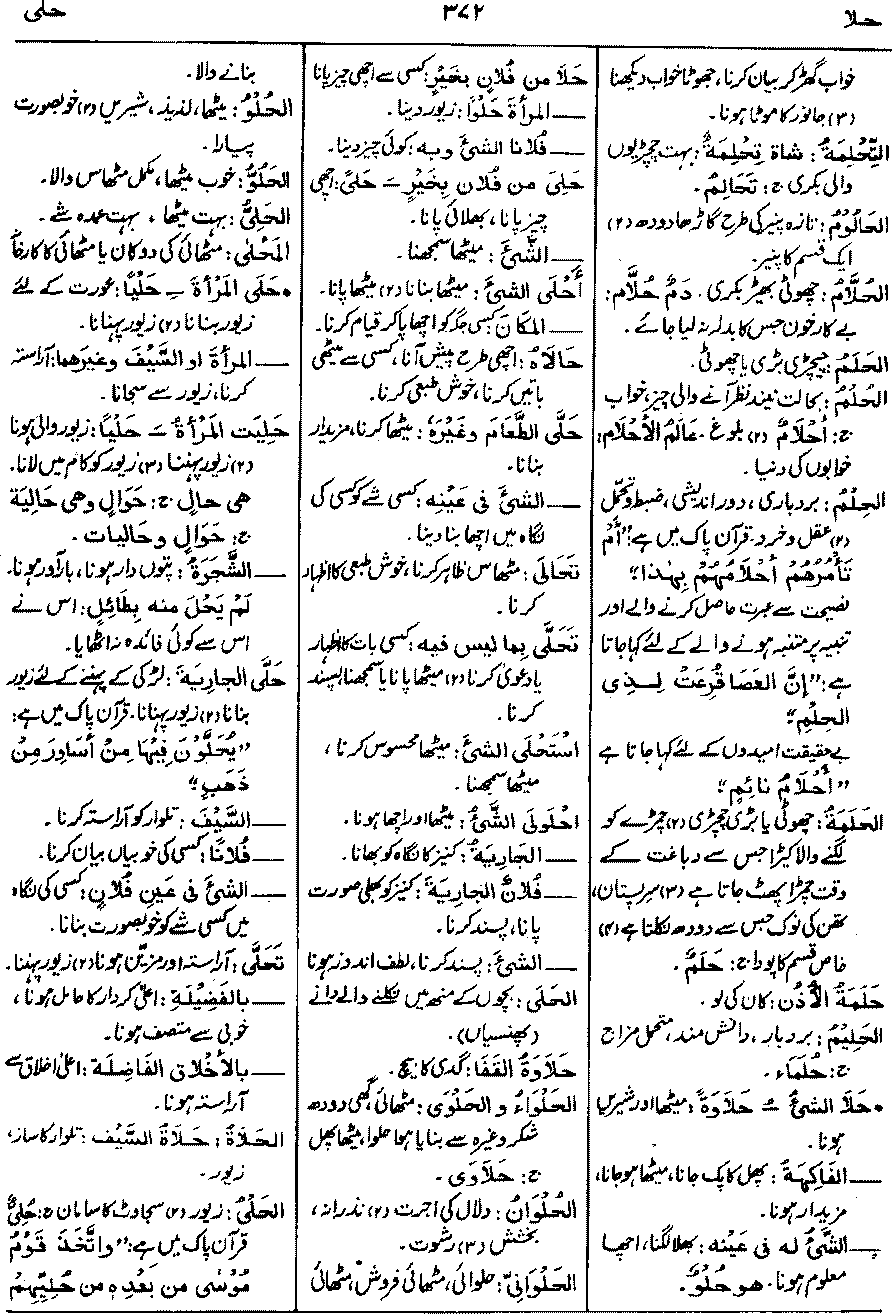 حلا
۳۷۲
حلی
خواب گھڑ کر بیان کرنا، جھوٹا خواب دیکھنا
(۳) جانور کا موٹا ہونا۔
التِّحْلِمَةُ: شاة تِحْلِمَةٌ: بہت چچڑیوں
والی بکری ج: تَحَالِمُ۔
الحَالُوْمُ: تازہ پنیر کی طرح گاڑھا دودھ (۲)
ایک قسم کا پنیر۔
الحُلَّامُ: چھوٹی بھیڑ بکری۔ دَمٌ حُلَّامٌ:
بے کار خون جس کا بدلہ نہ لیا جائے۔
الحَلَمُ: چیچڑی بڑی یا چھوٹی۔
الحُلْمُ: بحالت نیند نظر آنے والی چیز، خواب
ج: أَحْلَامٌ (۲) بلوغ۔ عَالَمُ الأَحْلَام:
خوابوں کی دنیا۔
الحِلْمُ: بردباری، دور اندیشی، ضبط و تحمّل
(۲) عقل و خرد۔ قرآن پاک میں ہے: "أَمْ
تَأْمُرُهُمْ أَحْلَامُهُمْ بِهٰذَا"
نصیحت سے عبرت حاصل کرنے والے اور
تنبیہ پر متنبہ ہونے والے کے لئے کہا جاتا
ہے: "إِنَّ العَصَا قُرِعَتْ لِذِی
الحِلْمِ"
بے حقیقت امیدوں کے لئے کہا جاتا ہے
"أَحْلَامُ نائِمٍ"
الحَلَمَةُ: چھوٹی یا بڑی چچڑی (۲) چمڑے کو
لگنے والا کیڑا جس سے دباغت کے
وقت چمڑا پھٹ جاتا ہے (۳) سرِ پستان،
تھن کی نوک جس سے دودھ نکلتا ہے (۴)
خاص قسم کا پودا ج: حَلَمٌ۔
حَلَمَةُ الأُذُن: کان کی لو۔
الحَلِيْمُ: بردبار، دانش مند، متحمل مزاج
ج: حُلَمَاء۔
• حَلَا الشیُٔ ـُ حَلَاوَةً: میٹھا اور شیریں
ہونا۔
— الفَاكِهَةُ: پھل کا پک جانا، میٹھا ہو جانا،
مزیدار ہونا۔
— الشَّیُٔ له فی عَيْنِه: بھلا لگنا، اچھا
معلوم ہونا۔ هو حُلْوٌ۔
حَلَا من فُلَان بِخَيْرٍ: کسی سے اچھی چیز پانا
— المرأةَ حَلْوًا: زیور دینا۔
— فُلانا الشیَٔ وبه: کوئی چیز دینا۔
حَلِیَ من فُلَان بِخَيْرٍ ـَ حَلًی: اچھی
چیز پانا، بھلائی پانا۔
— الشَّیَٔ: میٹھا سمجھنا۔
أَحْلَی الشیَٔ: میٹھا بنانا (۲) میٹھا پانا۔
— المکَانَ کسی جگہ کو اچھا پا کر قیام کرنا۔
حَالَاهُ: اچھی طرح پیش آنا، کسی سے میٹھی
باتیں کرنا، خوش طبعی کرنا۔
حَلَّی الطَّعَامَ وغَيْرَهٗ: میٹھا کرنا، مزیدار
بنانا۔
— الشیَٔ فی عَيْنِه: کسی شے کو کسی کی
نگاہ میں اچھا بنا دینا۔
تَحَالَی: مٹھاس ظاہر کرنا، خوش طبعی کا اظہار
کرنا۔
تَحَلَّی بِما لیس فیه: کسی بات کا اظہار
یا دعویٰ کرنا (۲) میٹھا پانا یا سمجھنا، پسند
کرنا۔
اسْتَحْلَی الشیَٔ: میٹھا محسوس کرنا،
میٹھا سمجھنا۔
احْلَولَی الشَّیُٔ: میٹھا اور اچھا ہونا۔
— الجَارِيَةُ: کنیز کا نگاہ کو بھانا۔
— فُلَانٌ الجَارِيَةَ: کنیز کو بھلی صورت
پانا، پسند کرنا۔
— الشیَٔ: پسند کرنا، لطف اندوز ہونا
الحَلَی: بچوں کے منھ میں نکلنے والے دانے
(پھنسیاں)۔
حَلَاوَةُ القَفَا: گدی کا بیچ۔
الحَلْوَاءُ و الحَلْوَی: مٹھائی، گھی دودھ
شکر وغیرہ سے بنایا ہوا حلوا، میٹھا پھل
ج: حَلَاوَی۔
الحُلْوَانُ: دلال کی اجرت (۲) نذرانہ،
بخشش (۳) رشوت۔
الحَلْوَانِیّ: حلوائی، مٹھائی فروش، مٹھائی
بنانے والا۔
الحُلْوُ: میٹھا، لذیذ، شیریں (۲) خوبصورت
پیارا۔
الحَلُوُّ: خوب میٹھا، مکمل مٹھاس والا۔
الحَلِیُّ: بہت میٹھا، بہت عمدہ شے۔
المَحْلٰی: مٹھائی کی دوکان یا مٹھائی کا کارخانہ
• حَلَی المَرْأةَ ـِ حَلْيًا: عورت کے لئے
زیور بنانا (۲) زیور پہنانا۔
— المرأةَ او السَّيْفَ وغيرَهما: آراستہ
کرنا، زیور سے سجانا۔
حَلِيَت المَرْأةُ ـَ حَلْيًا: زیور والی ہونا
(۲) زیور پہننا (۳) زیور کو کام میں لانا۔
هی حالٍ ج: حَوَالٍ وهی حَالِيَة
ج: حَوَالٍ وحَالیات۔
— الشَّجَرَةُ: پتوں دار ہونا، بارآور ہونا۔
لَمْ يَحْلَ منه بِطَائِلٍ: اس نے
اس سے کوئی فائدہ نہ اٹھایا۔
حَلَّی الجارِيَةَ: لڑکی کے پہننے کے لئے زیور
بنانا (۲) زیور پہنانا۔ قرآن پاک میں ہے:
"يُحَلَّوْنَ فِيْهَا مِنْ أَسَاوِرَ مِنْ
ذَهَبٍ"
— السَّيْفَ: تلوار کو آراستہ کرنا۔
— فُلَانًا: کسی کی خوبیاں بیان کرنا۔
— الشیَٔ فی عَينِ فُلَانٍ: کسی کی نگاہ
میں کسی شے کو خوبصورت بنانا۔
تَحَلَّی: آراستہ اور مزیّن ہونا (۲) زیور پہننا۔
— بالفَضِيْلَةِ: اعلیٰ کردار کا حامل ہونا،
خوبی سے متصف ہونا۔
— بالأَخْلَاق الفَاضِلَة: اعلیٰ اخلاق سے
آراستہ ہونا۔
الحَلَاةُ: حَلَاةُ السَّيْف: تلوار کا ساز،
زیور۔
الحَلْیُ: زیور (۲) سجاوٹ کا سامان ج: حُلِیٌّ
قرآن پاک میں ہے: "وَاتَّخَذَ قَوْمُ
مُوْسٰی من بَعْدِهٖ من حُلِيِّهِمْ